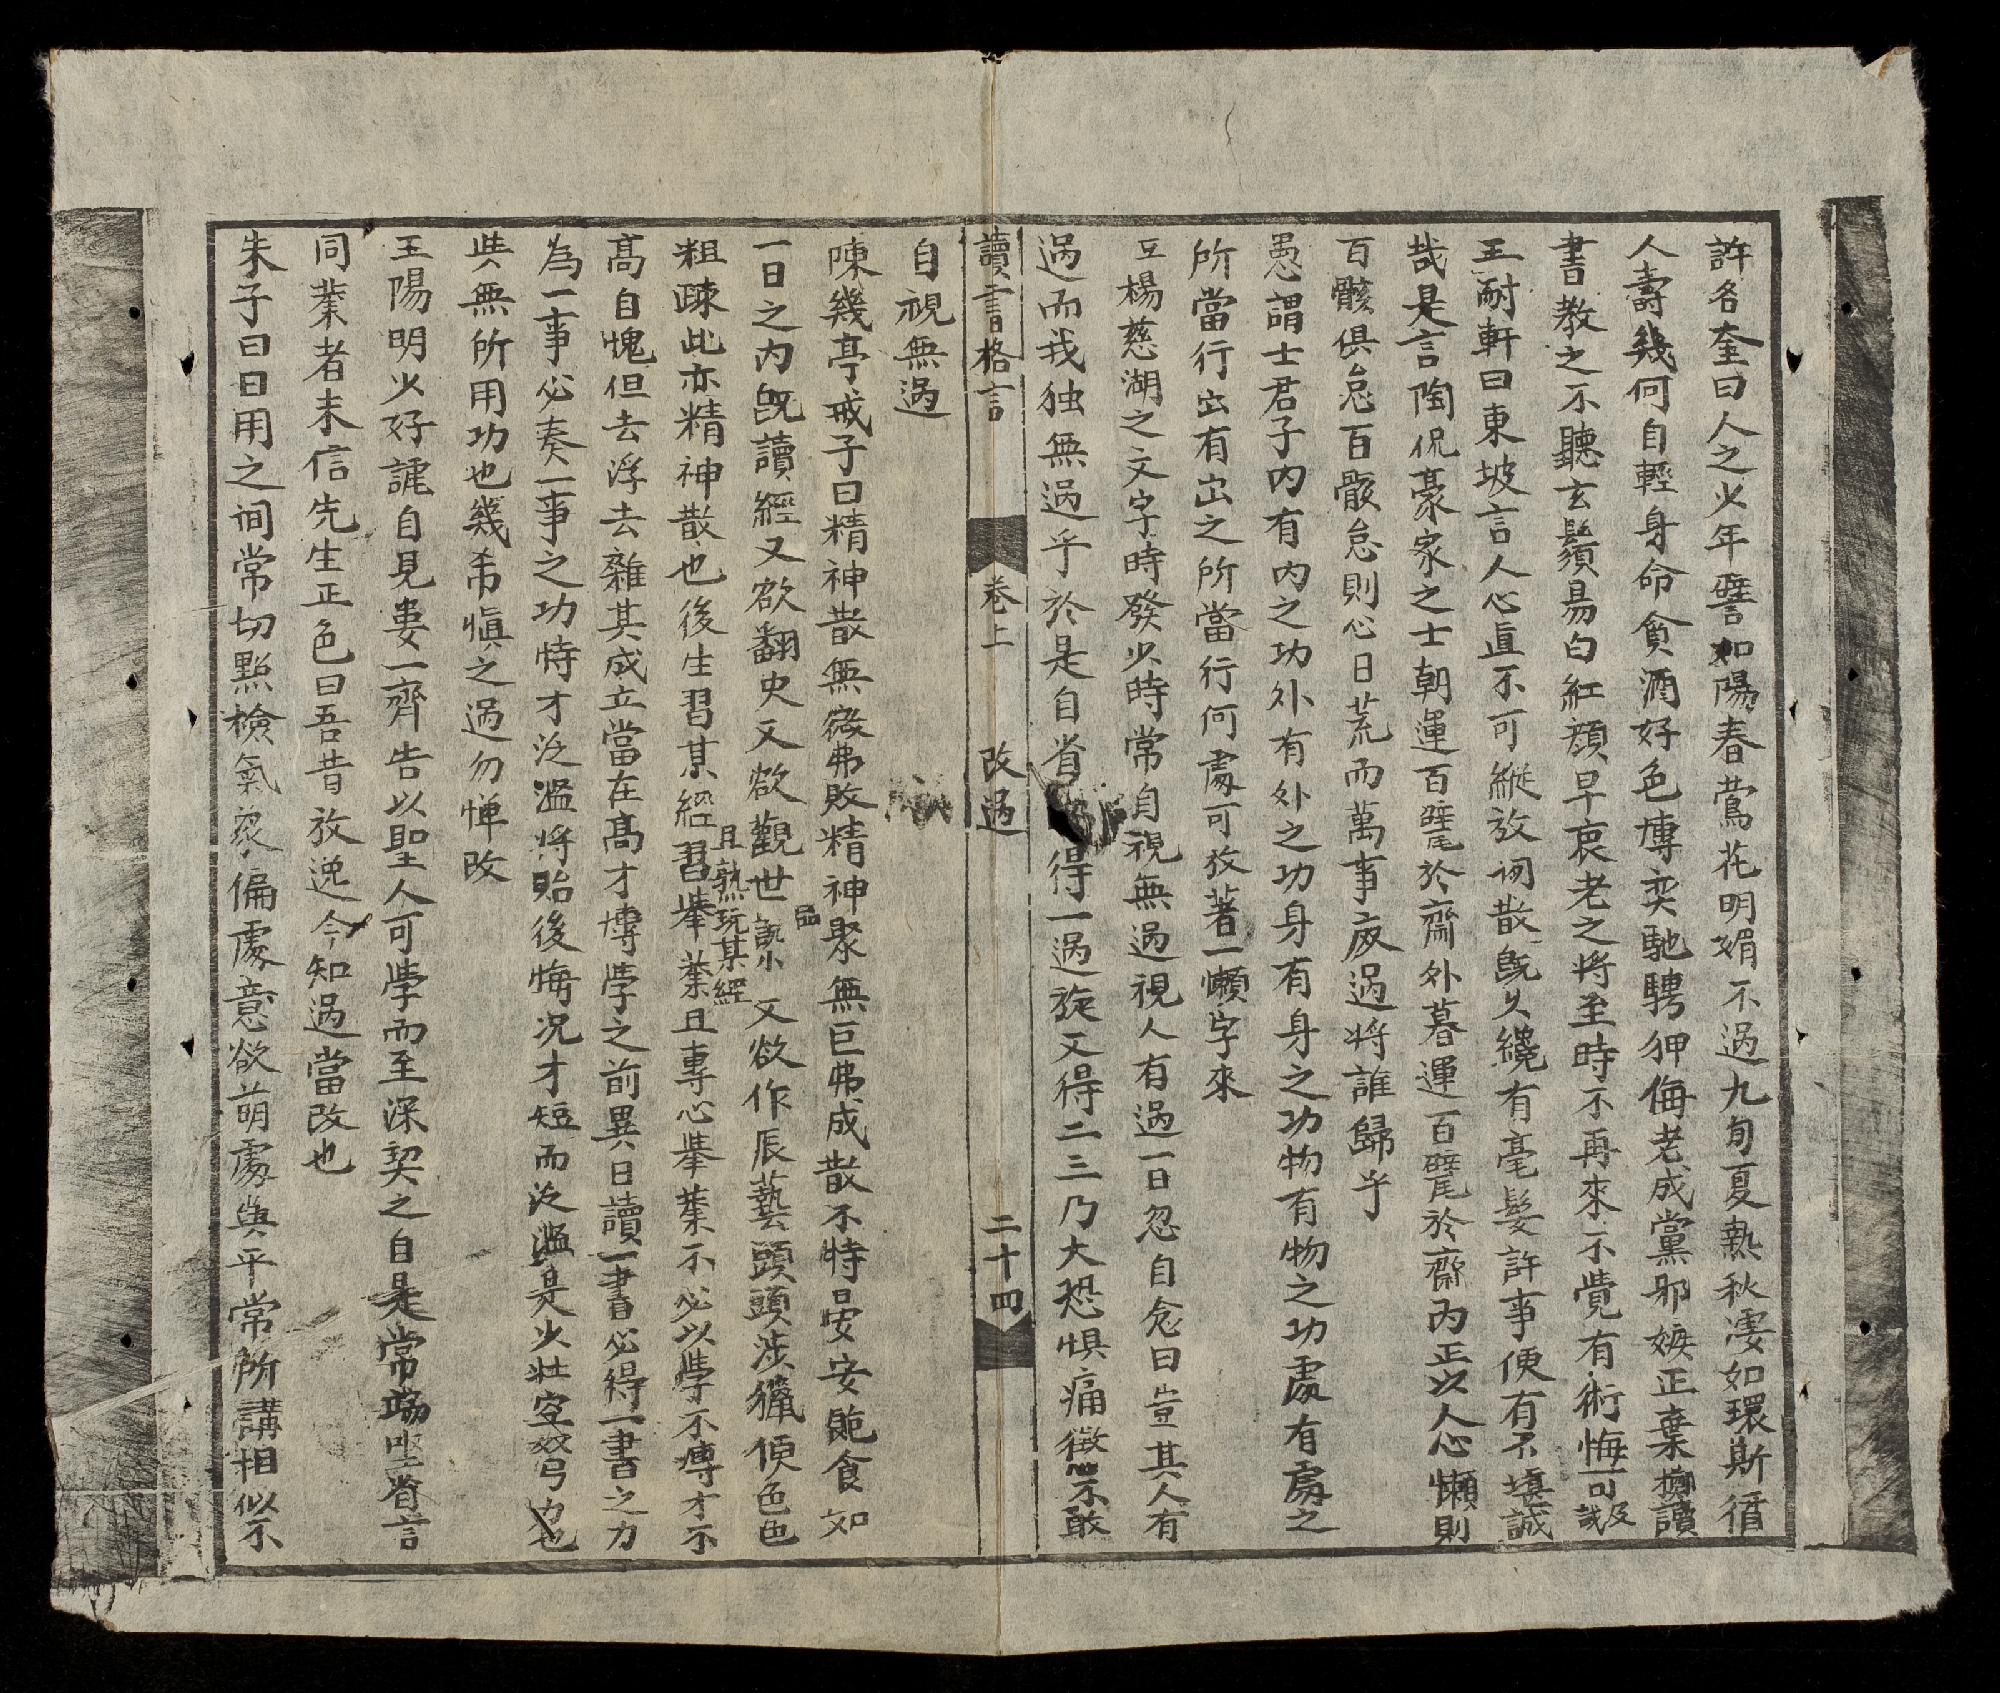 許名奎曰人之少年譬如陽春鶯花明媚不過九旬夏熱秋凄如環斯循
人壽幾何自輕身命貪酒好色博奕馳騁狎侮老成黨邪嫉正棄擲讀
書教之不聽玄鬢易白紅顔早衰老之將至時不再來不覺有術悔可及哉
王耐軒曰東坡言人心直不可縱放閒散旣久纔有毫髮許事便有不堪誠
哉是言陶侃豪家之士朝運百甓於齋外暮運百甓於齋內正以人心懶則
百骸俱怠百骸怠則心日荒而萬事廢過將誰歸乎
愚謂士君子內有內之功外有外之功身有身之功物有物之功處有處之
所當行出有出之所當行何處可放著一懶字來
楊慈湖之文字時發少時常自視無過視人有過一日忽自念曰豈其人有
過而我独無過乎於是自省得一過旋又得二三乃大恐懼痛徵不敢
讀書格言 卷上 改過 二十四
自視無過
陳幾亭戒子曰精神散無微弗敗精神聚無巨弗成散不特晏安飽食如
一日之内旣讀經又欲翻史又欲觀世說小品又欲作辰藝頭頭涉獵便色色
粗疎此亦精神散也後生習某經且熟玩某經習舉業且專心舉業不必以學不博才不
高自愧但去浮去雜其成立當在高才博學之前異日讀一書必得一書之力
為一事必奏一事之功恃才泛濫將貽後悔况才短而泛濫是少壯空弩力也
此無所用功也幾希愼之過勿憚改
王陽明少好謔自見婁一齊告以聖人可學而至深契之自是常端坐省言
同業者未信先生正色曰吾昔放逸今知過當改也
朱子曰日用之间常切點檢氣禀偏處意欲萌處與平常所講相似不